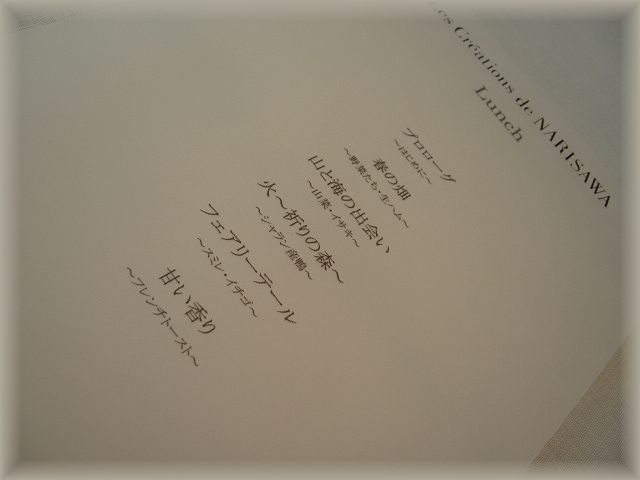 Les Créations de NARISAWA
Lunch
プロローグ
～はじめに～
春の畑
～野菜たち・生ハム～
山と海の出会い
～山菜・イサキ～
火～祈りの森～
～シャラン産鴨～
フェアリーテール
～スミレ・イチゴ～
甘い香り
～フレンチトースト～